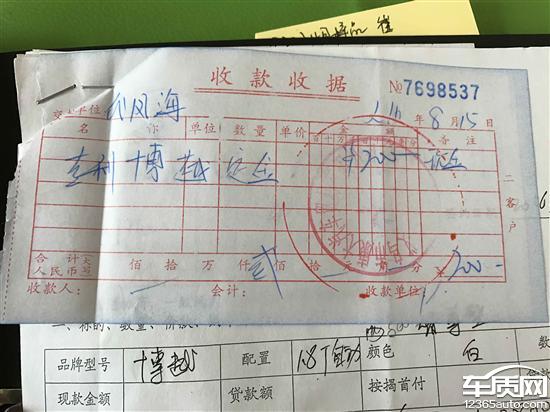 收款收据
№7698537
交款单位 年 8 月 15 日
名 称 单位 数量 单价 金 额 备注
百 十 万 千 百 十 元 角 分
吉利 博越 定金 ¥200 定金
二 客户
合 计 大
人民币 写 佰 拾 万 仟 贰 佰 拾 元 角 分 ¥ 200-
收款人： 会计： 收款单位：
一、标的、数量、价款
品牌型号 博越 配置 1.8T 颜色 白 数
现款金额 贷款额 按揭首付
车质网
12365auto.com